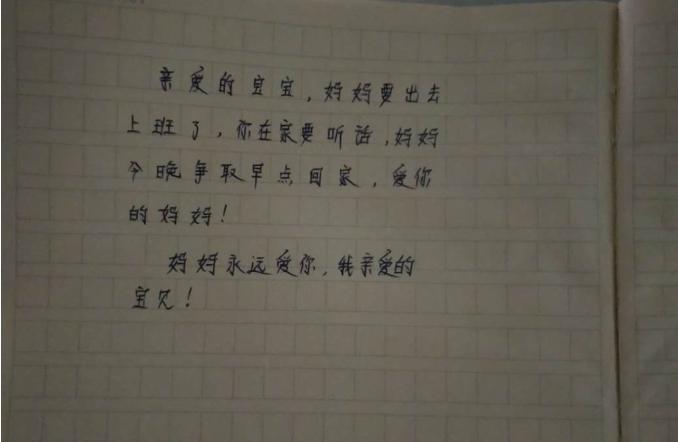 亲爱的宝宝，妈妈要出去
上班了，你在家要听话，妈妈
今晚争取早点回家，爱你
的妈妈！
妈妈永远爱你，我亲爱的
宝贝！